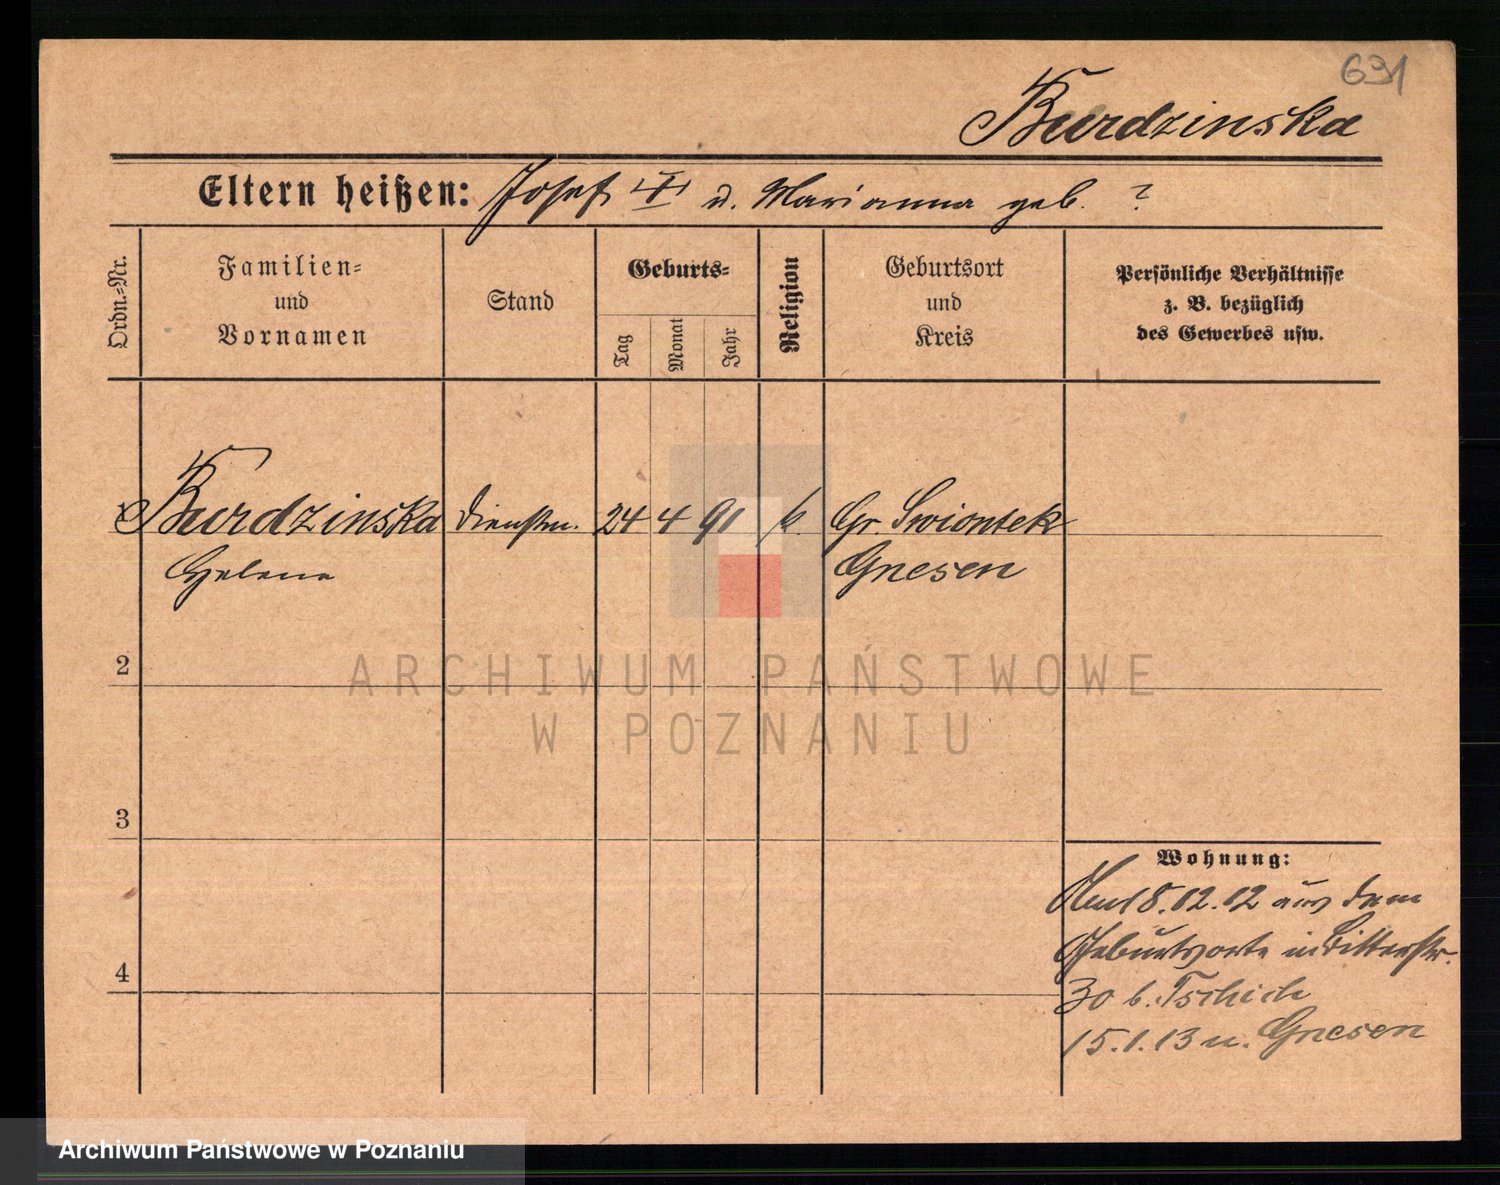 631
Burdzinska
Eltern heißen: Josef u. Marianna geb. ?
Ordn.=Nr.
Familien=
und
Vornamen
Stand
Geburts=
Tag
Monat
Jahr
Religion
Geburtsort
und
Kreis
Persönliche Verhältnisse
z. B. bezüglich
des Gewerbes usw.
Burdzinska Dienstm. 24 4 91 k. Gr. Swiontek
Helene Gnesen
2
3
4
Wohnung:
Am 8.12.12 aus dem
Geburtsorte in Bitterstr.
30 b. Tschich
15.1.13 n. Gnesen
ARCHIWUM PAŃSTWOWE
W POZNANIU
Archiwum Państwowe w Poznaniu